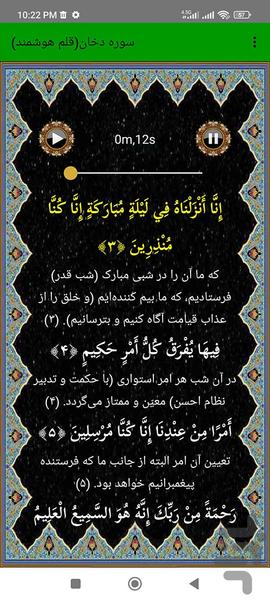 10:22 PM
4.5G
57
سوره دخان(قلم هوشمند)
0m,12s
إِنَّا أَنْزَلْنَاهُ فِي لَيْلَةٍ مُبَارَكَةٍ إِنَّا كُنَّا
مُنْذِرِينَ ﴿۳﴾
که ما آن را در شبی مبارک (شب قدر)
فرستادیم، که ما بیم کننده‌ایم (و خلق را از
عذاب قیامت آگاه کنیم و بترسانیم). (۳)
فِيهَا يُفْرَقُ كُلُّ أَمْرٍ حَكِيمٍ ﴿۴﴾
در آن شب هر امر استواری (با حکمت و تدبیر
نظام احسن) معیّن و ممتاز می‌گردد. (۴)
أَمْرًا مِنْ عِنْدِنَا إِنَّا كُنَّا مُرْسِلِينَ ﴿۵﴾
تعیین آن امر البته از جانب ما که فرستنده
پیغمبرانیم خواهد بود. (۵)
رَحْمَةً مِنْ رَبِّكَ إِنَّهُ هُوَ السَّمِيعُ الْعَلِيمُ